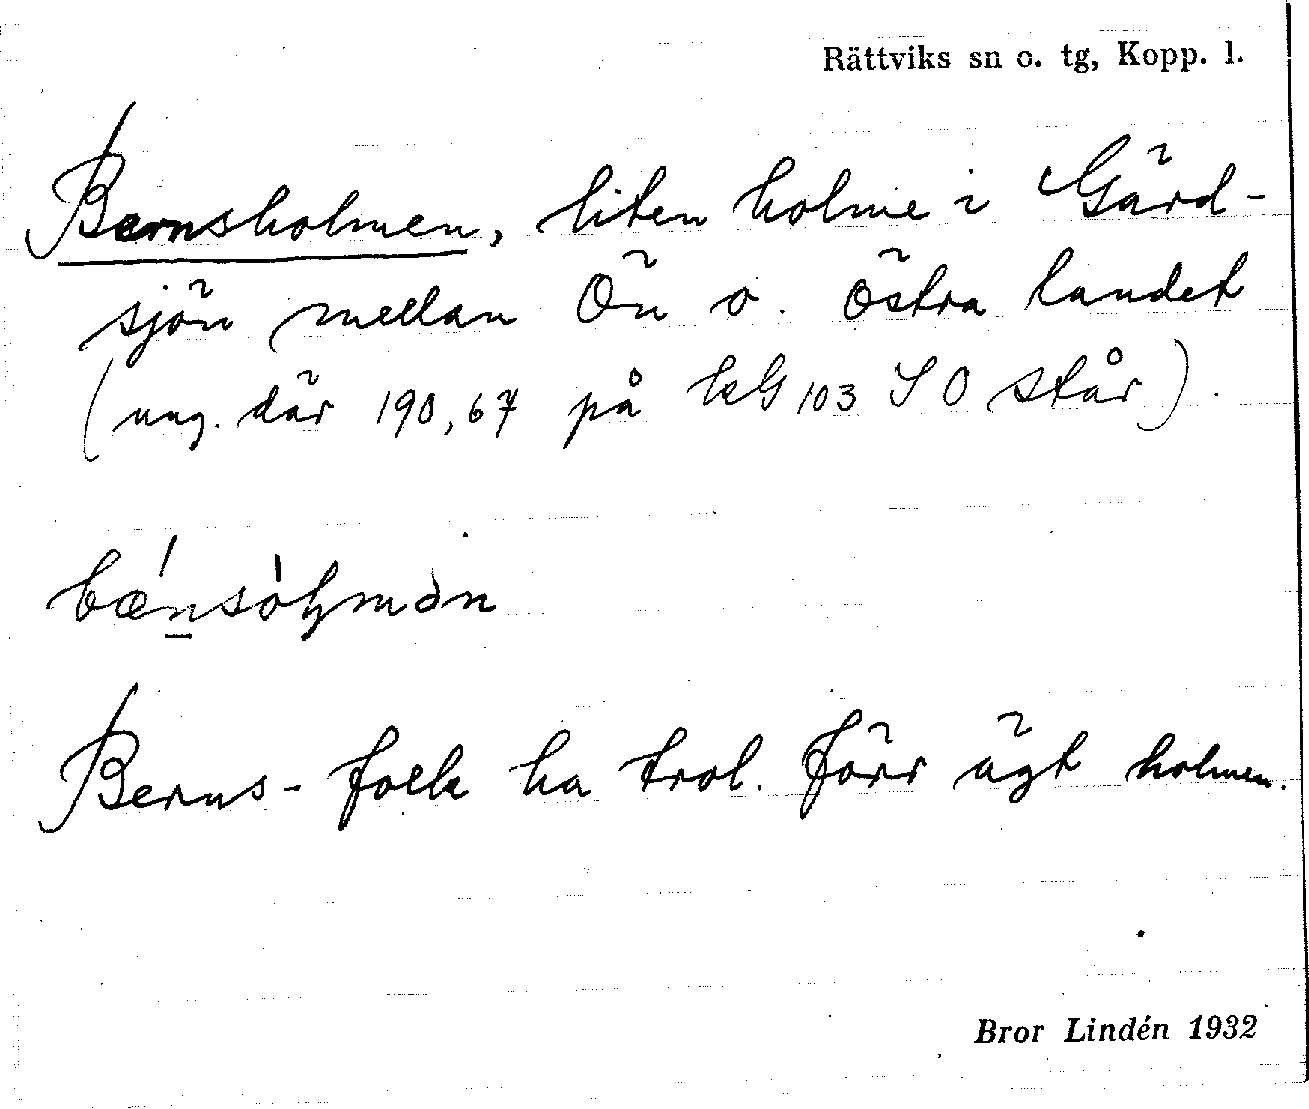 Rättviks sn o. tg, Kopp. l.
Bernsholmen, liten holme i Gärd-
sjön mellan Ön o. östra landet
(ung. där 190,67 på kG 103 SO står).
bǽnsòḷmən
Berns-folk ha trol. förr ägt holmen.
Bror Lindén 1932